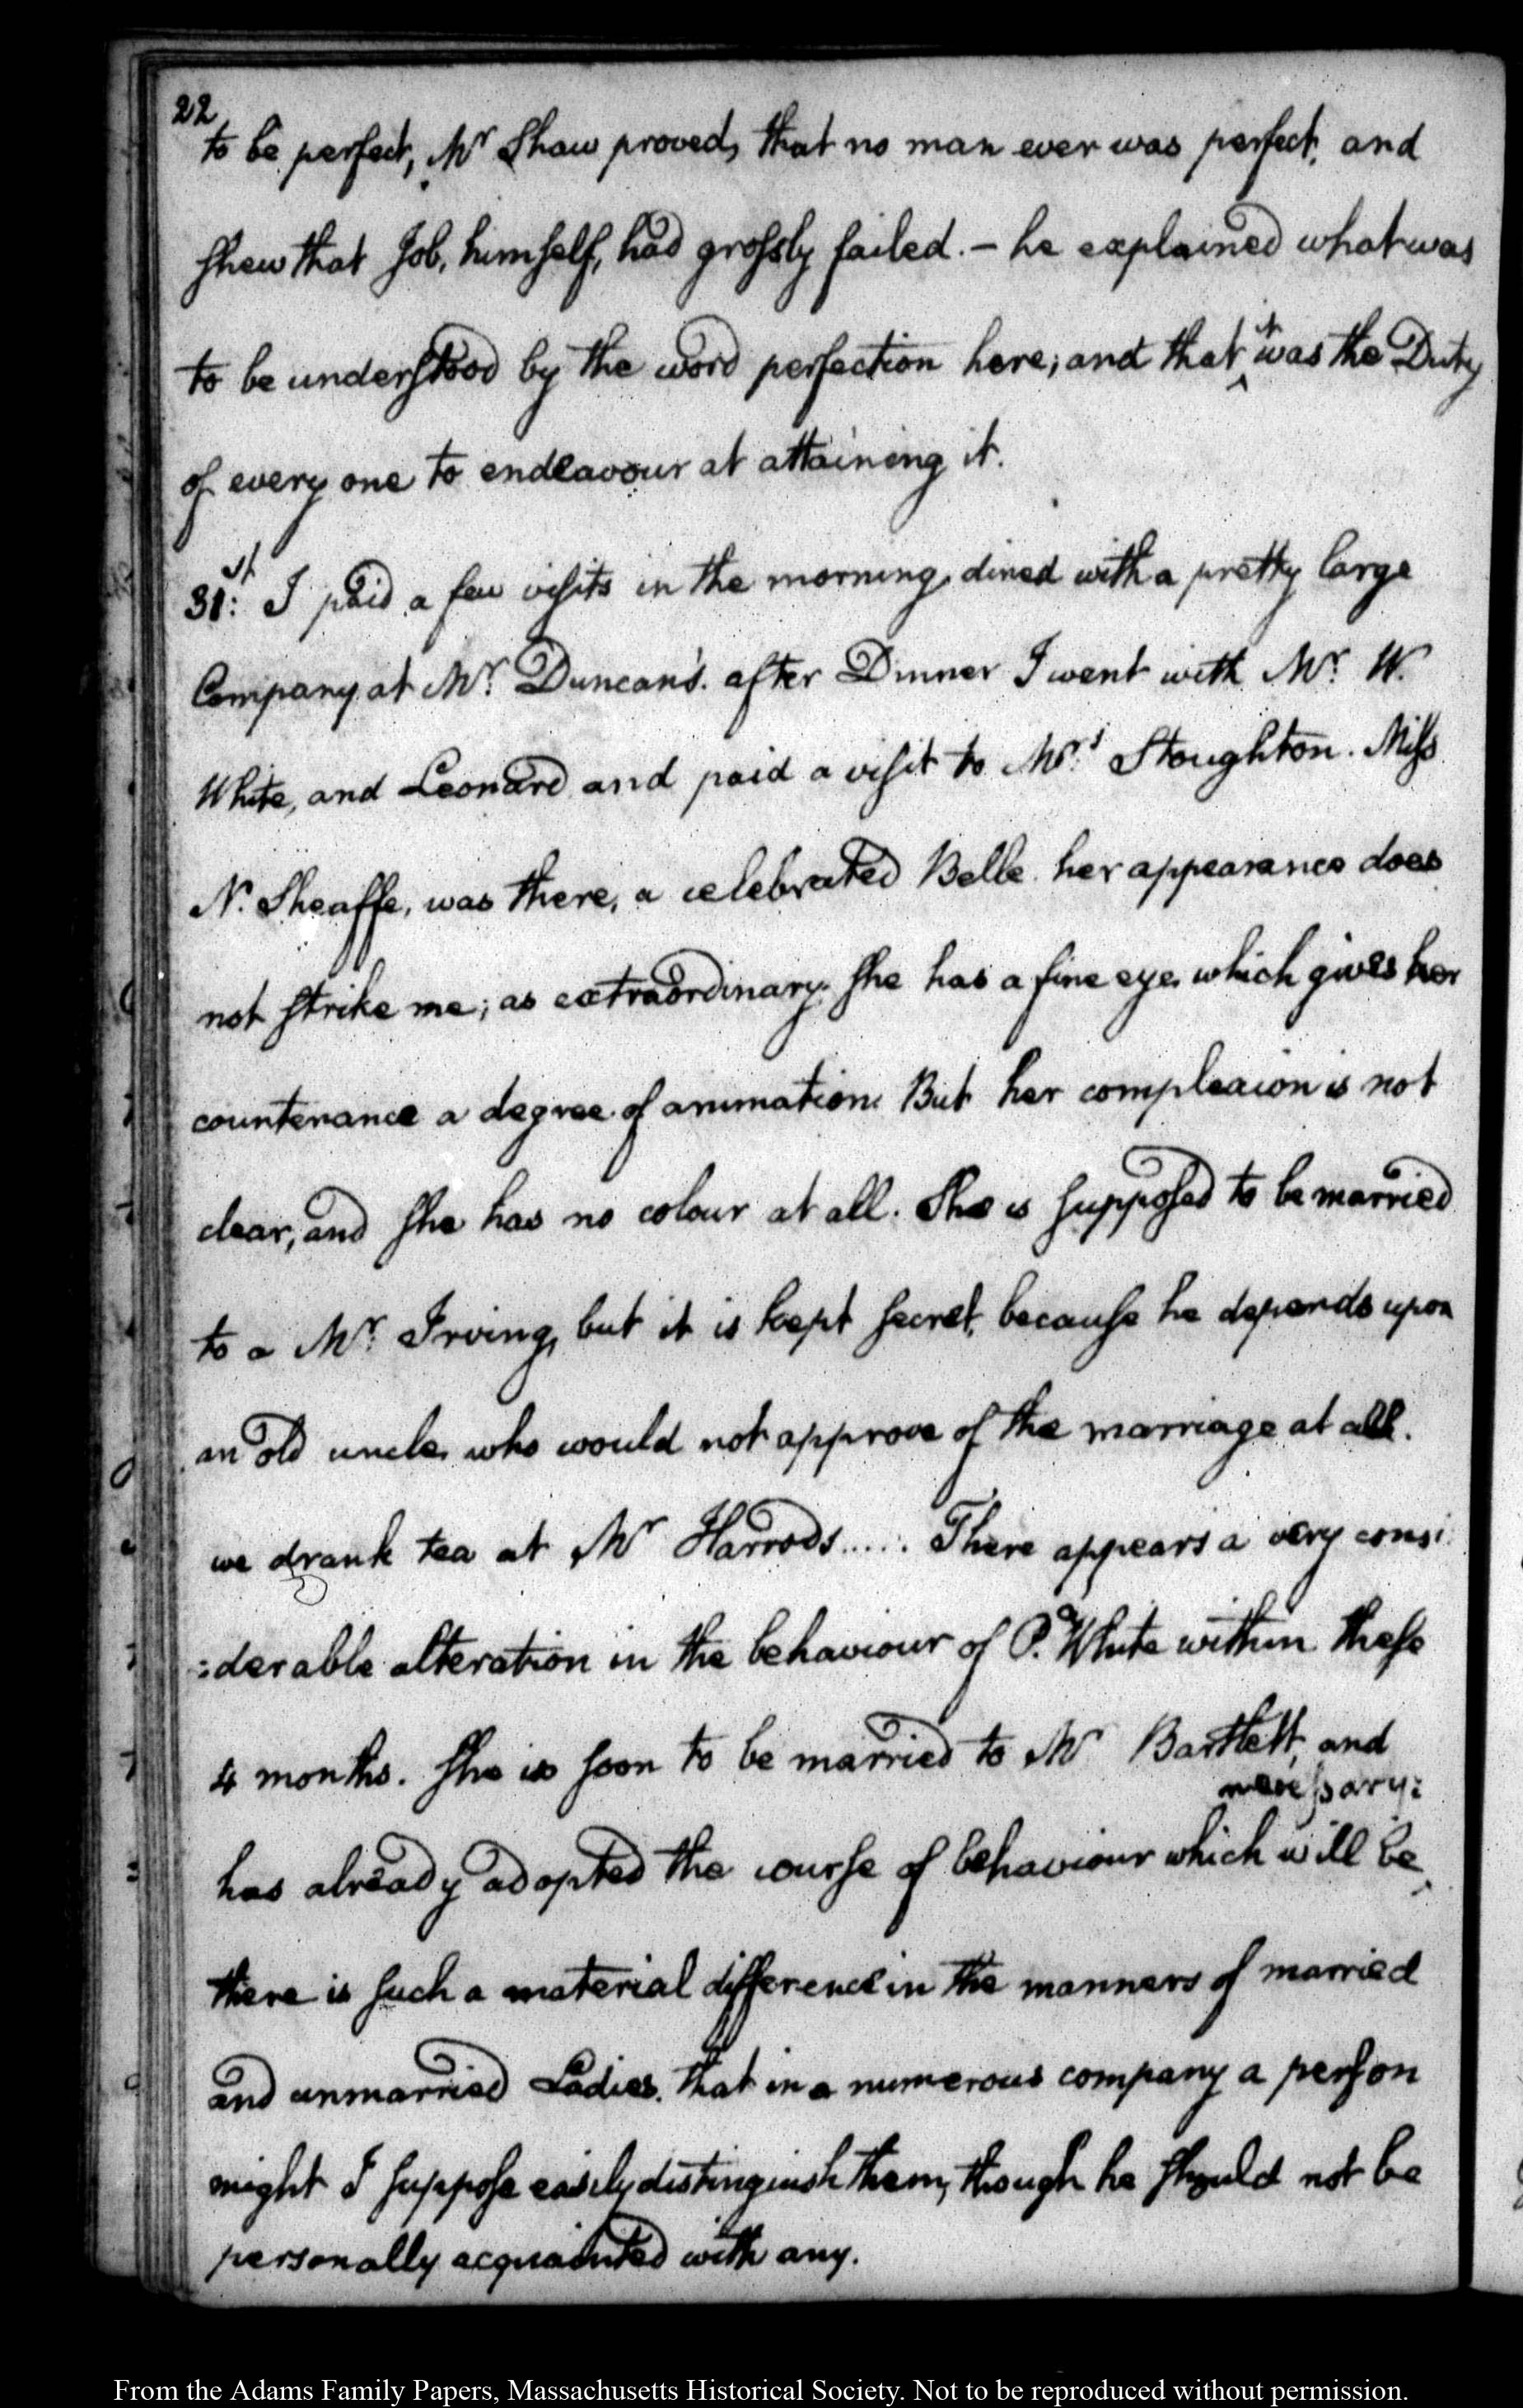 22
to be perfect, Mr Shaw proved, that no man ever was perfect, and
shew that Job, himself, had grossly failed. — he explained what was
to be understood by the word perfection here; and that it was the Duty
of every one to endeavour at attaining it.
31st: I paid a few visits in the morning, dined with a pretty large
Company at Mr. Duncan's. after Dinner I went with Mr. W.
White, and Leonard and paid a visit to Mrs. Stoughton. Miss
N. Sheaffe, was there, a celebrated Belle. her appearance does
not strike me; as extraordinary. She has a fine eye, which gives her
countenance a degree of animation. But her complexion is not
clear, and she has no colour at all. She is supposed to be married
to a Mr. Irving, but it is kept secret, because he depends upon
an old uncle, who would not approve of the marriage at all.
we drank tea at Mr Harrods..... There appears a very consi:
:derable alteration in the behaviour of P. White within these
4 months. She is soon to be married to Mr Bartlett, and
has already adopted the course of behaviour which will be necessary:
there is such a material difference in the manners of married
and unmarried Ladies, that in a numerous company a person
might I suppose easily distinguish them, though he should not be
personally acquainted with any.
From the Adams Family Papers, Massachusetts Historical Society. Not to be reproduced without permission.